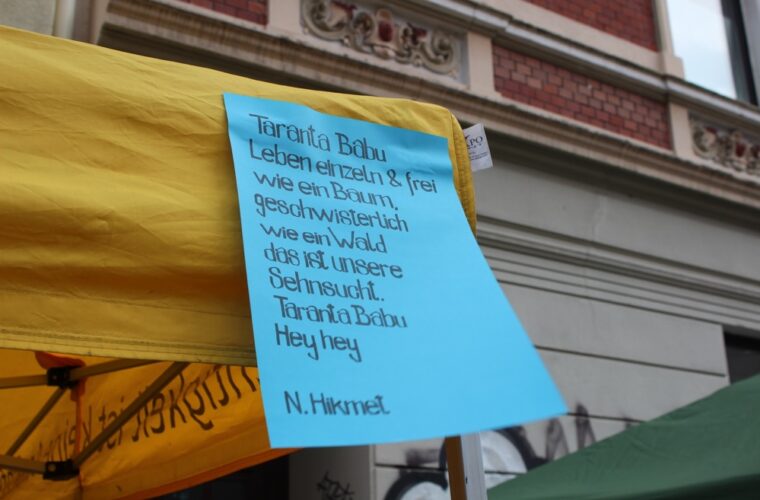 Taranta Babu
Leben einzeln & frei
wie ein Baum.
geschwisterlich
wie ein Wald
das ist unsere
Sehnsucht.
Taranta Babu
Hey hey
N. Hikmet